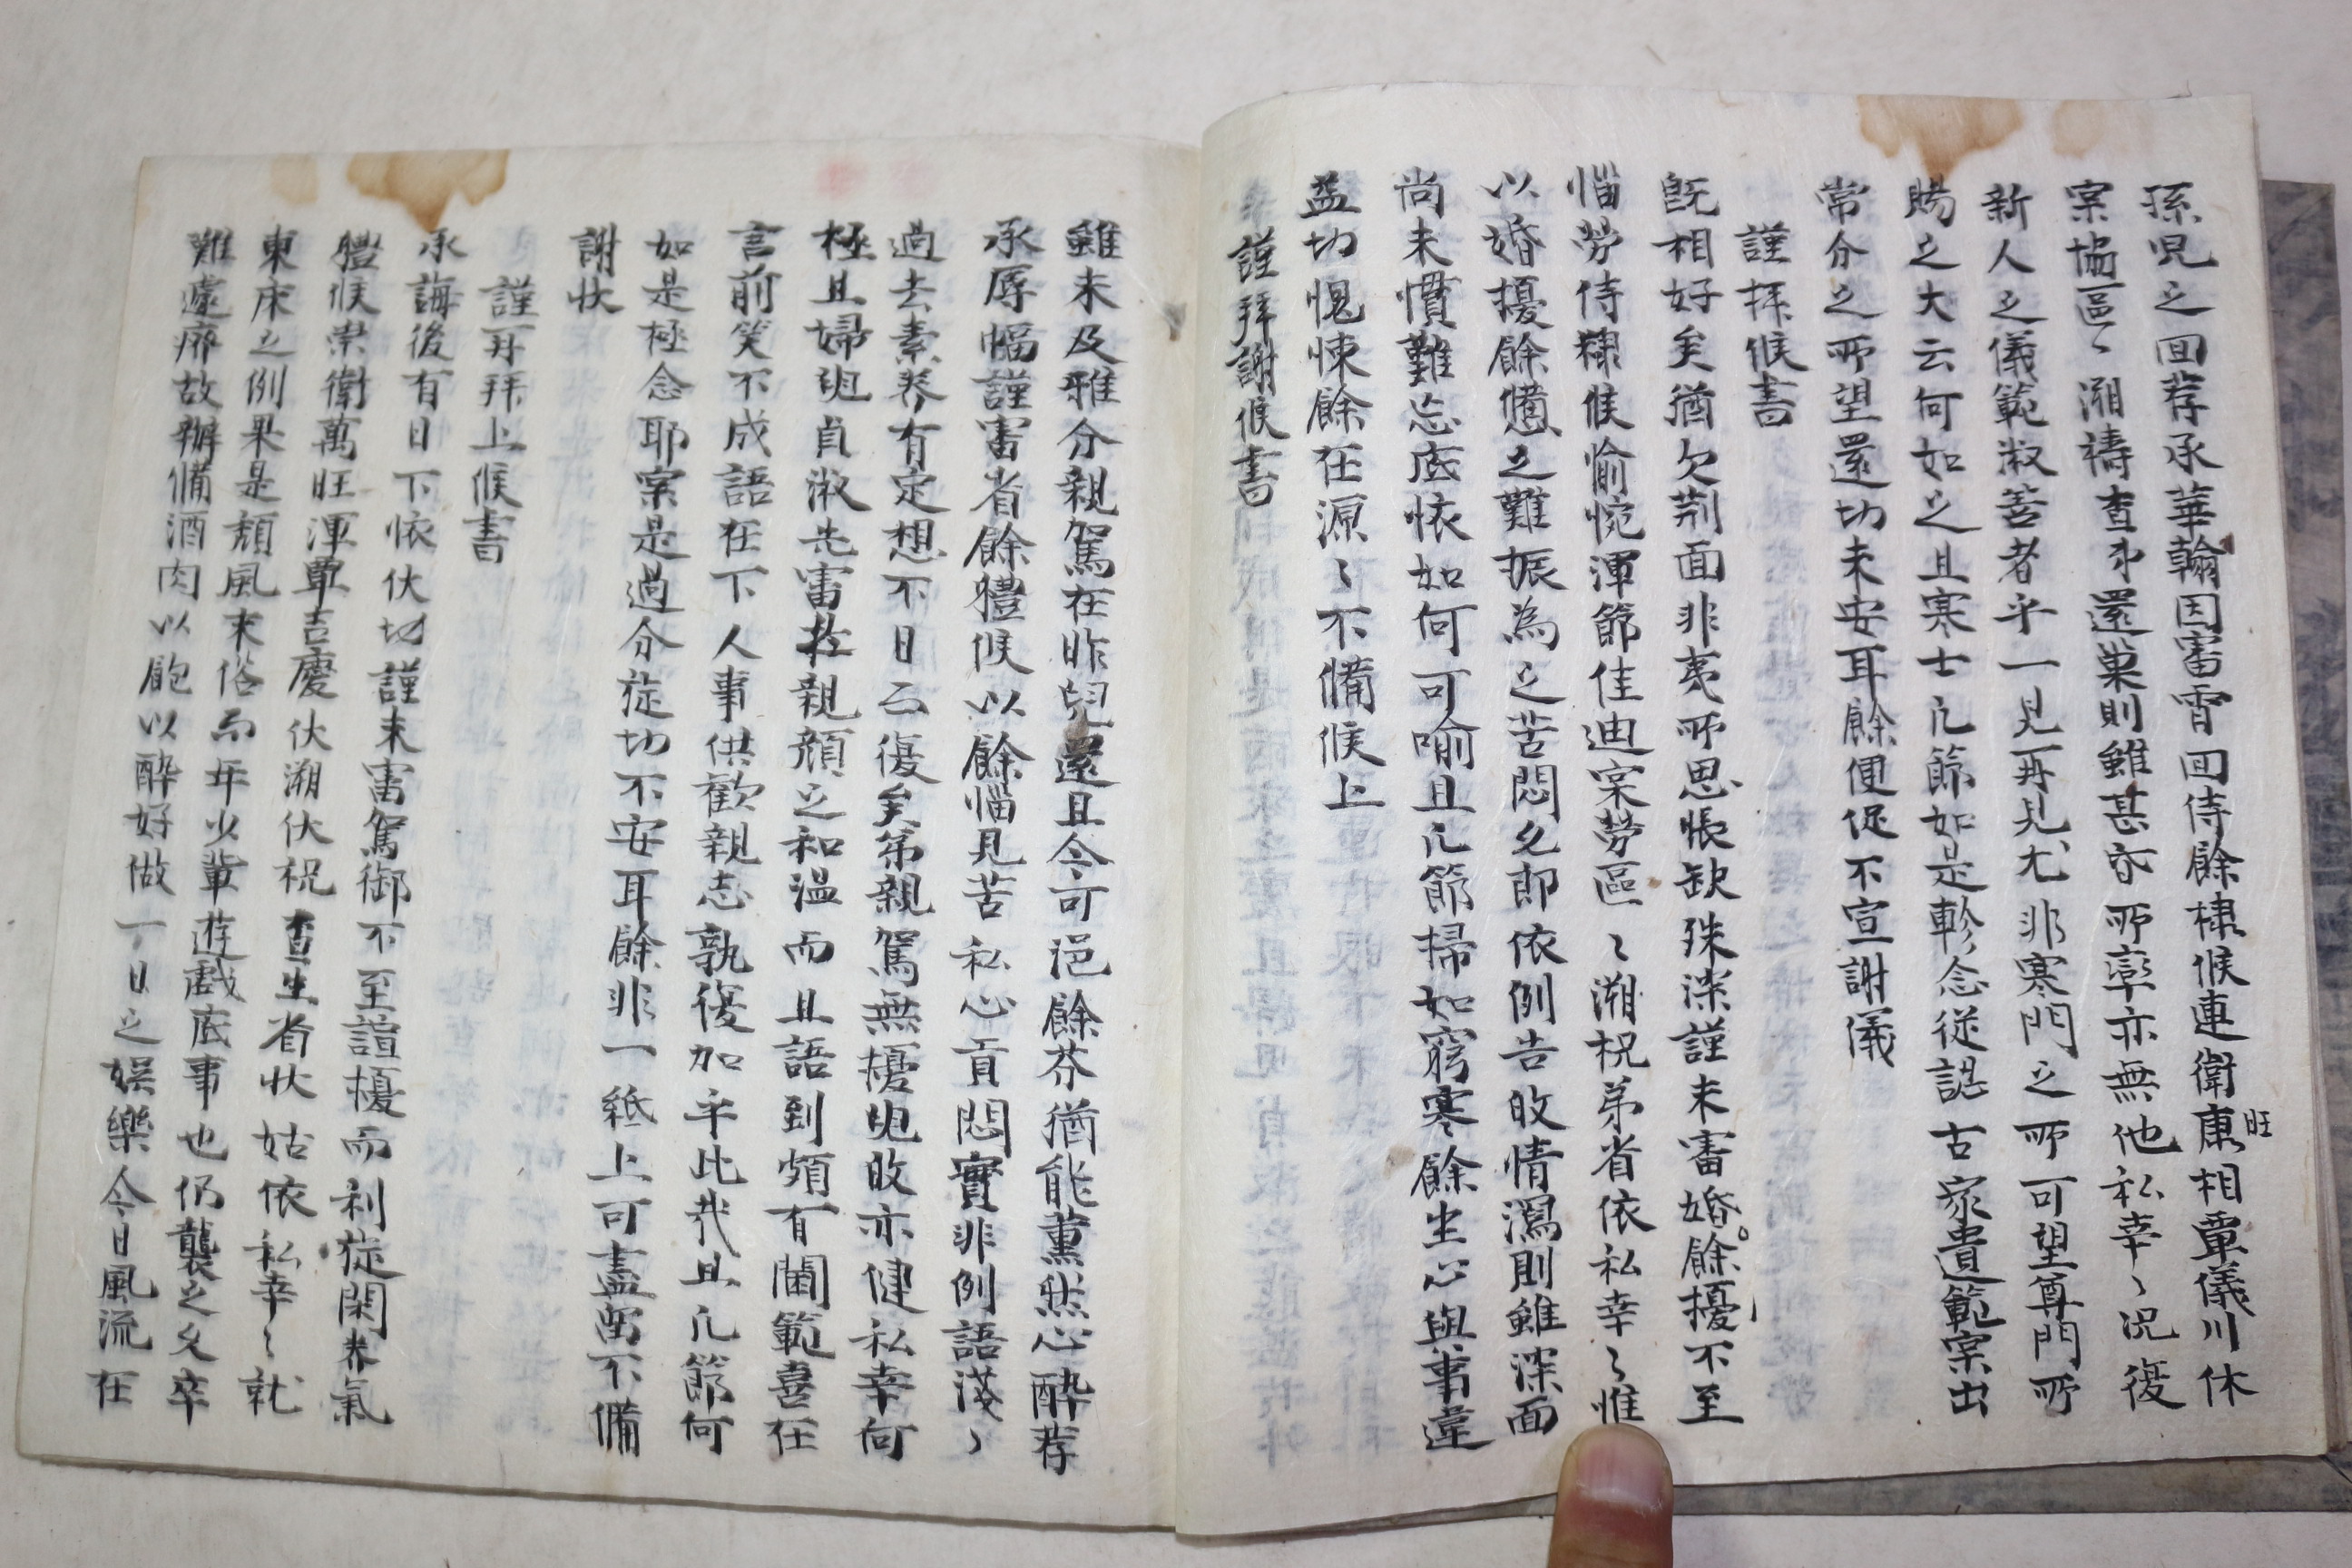 孫児之回荐承華翰因審霄回侍餘棣候連衛康旺相覃儀川休
案協區〻溯禱査弟還巢則雖甚奇所率亦無他私幸〻况復
新人之儀範淑善者乎一見再見尤非寒門之所可望尊門所
賜之大云何如之且寒士凡節如是軫念從認古家遺範案出
常分之所望還切未安耳餘便促不宣謝儀
謹拜候書
旣相好矣猶欠荊面非夷所思悵缺殊深謹未審婚餘擾不至
惱勞侍棣候愉惋渾節佳迪案勞區〻溯祝弟省依私幸〻惟
以婚擾餘憊之難振為之苦悶允郎依例告敀情瀉則雖深面
尚未慣難忘底懷如何可喻且凡節掃如窮寒餘生心與事違
益切愧悚餘在源〻不備候上
謹拜謝候書
雖未及雅分親駕在昨兒還且令可浥餘芬猶能薰然心醉荐
承厚幅謹審省餘體候以餘惱見苦私心貢悶實非例語淺〻
過去素養有定想不日云復矣弟親駕無擾兒敀亦健私幸何
極且婦兒貞淑先審於親顏之和溫而且語到頗有閫範喜在
言前笑不成語在下人事供歡親志孰復加乎此哉且凡節何
如是極念耶案是過分旋切不安耳餘非一紙上可盡留不備
謝狀
謹再拜上候書
承誨後有日下懷伏切謹未審駕御不至諠擾而利旋閑養氣
體候崇衛萬旺渾覃吉慶伏溯伏祝査生省狀姑依私幸〻就
東床之例果是頹風末俗而年少輩遊戲底事也仍襲之久卒
難遽廢故辦備酒肉以飽以醉好做一日之娛樂今日風流在